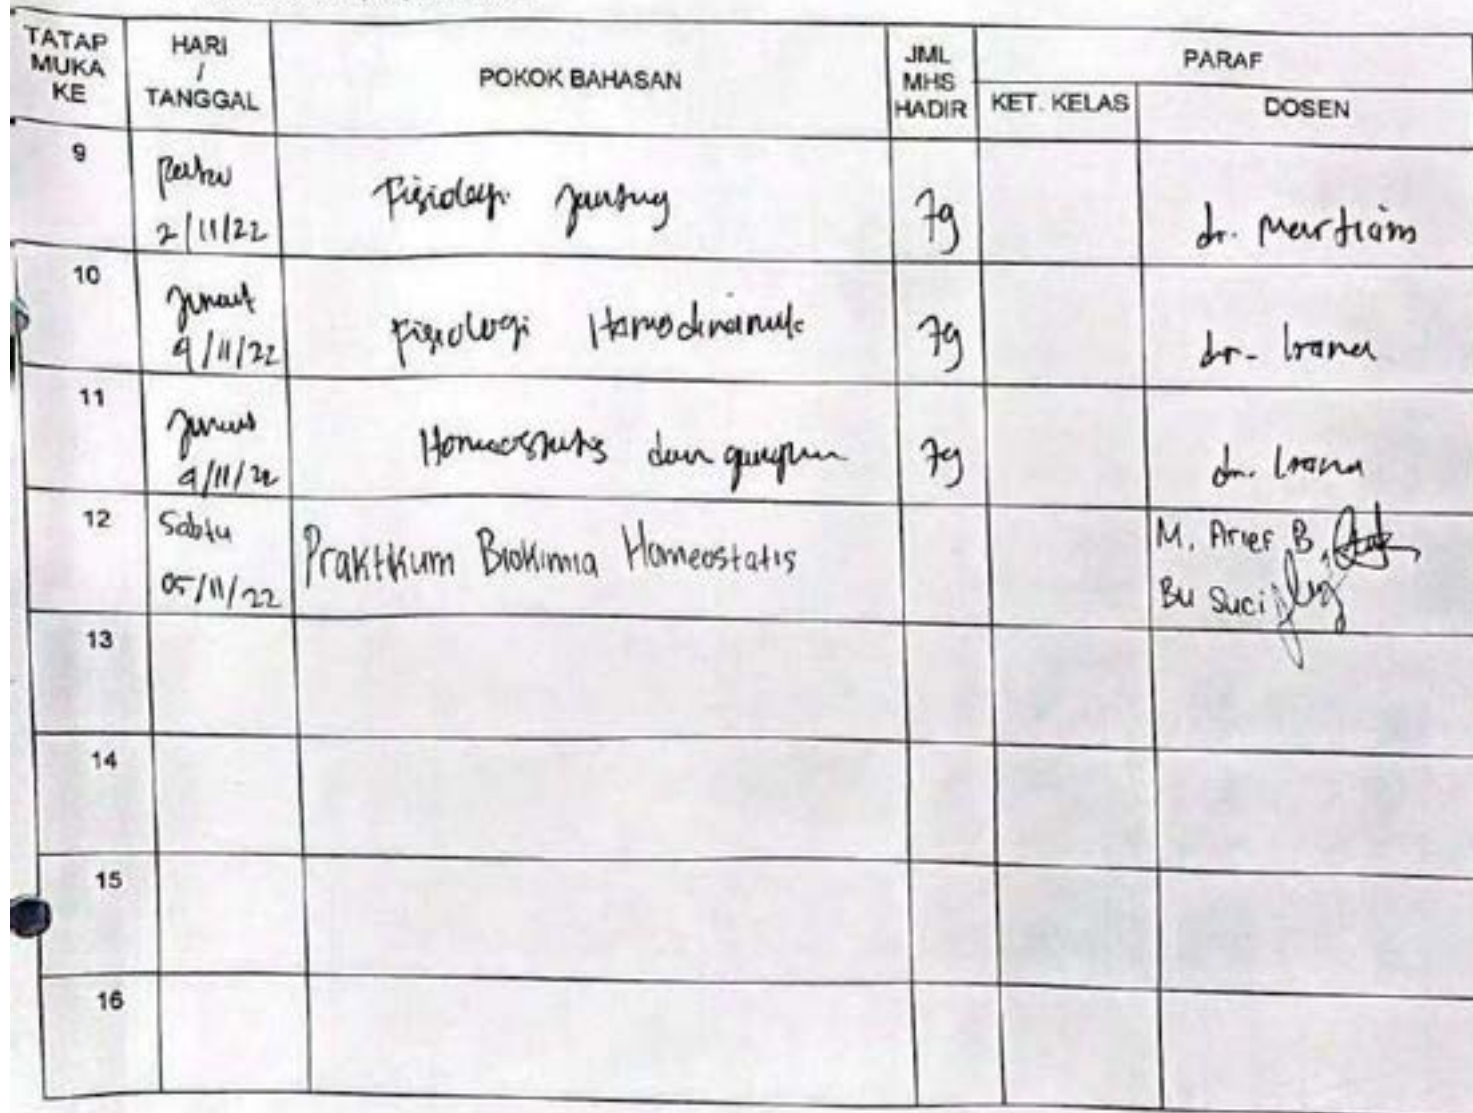 TATAP MUKA KE
HARI / TANGGAL
POKOK BAHASAN
JML MHS HADIR
PARAF
KET. KELAS
DOSEN
9
2/11/22
Fisiologi Jantung
79
dr.
10
4/11/22
Fisiologi Hemodinamik
79
dr.
11
4/11/22
Homeostatis dan
79
dr.
12
Sabtu
05/11/22
Praktikum Biokimia Homeostatis
M. Arief B,
Bu Suci
13
14
15
16